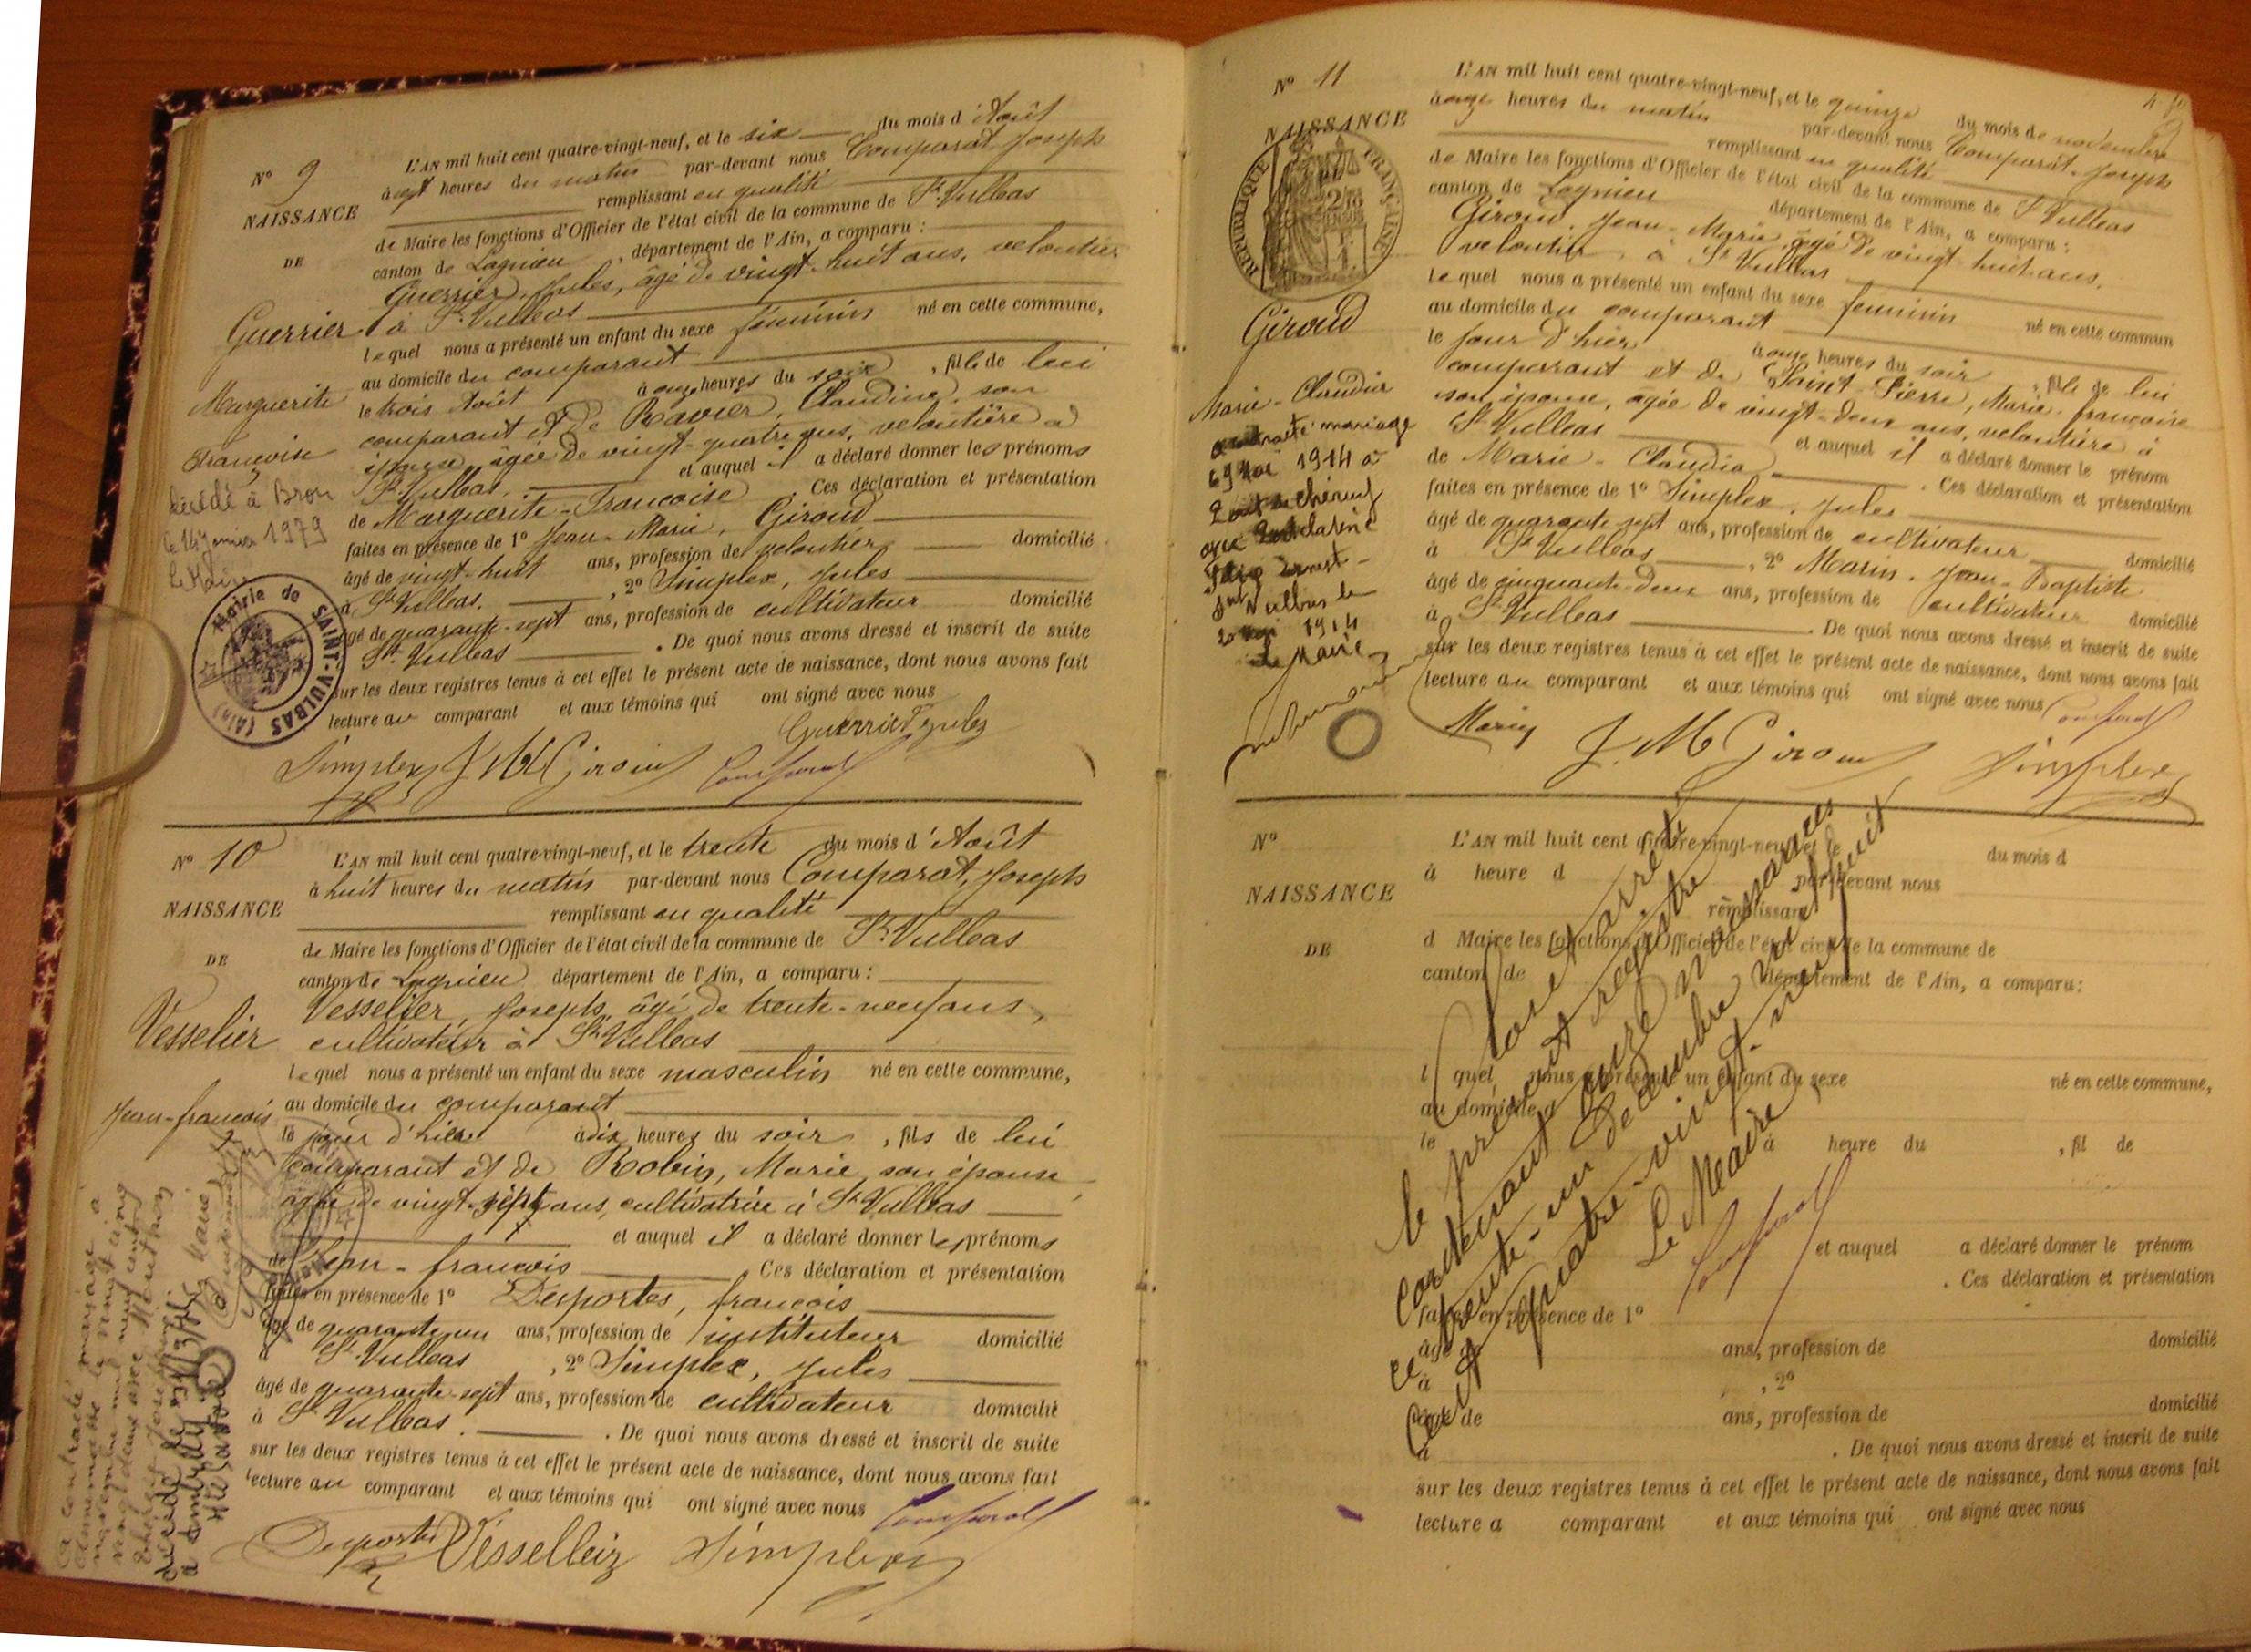 N° 9
NAISSANCE
DE
Guerrier
Marguerite
Françoise
décédé à Bron
le 14 janvier 1979
Le Maire
Mairie de SAINT-VULBAS (Ain)
L'AN mil huit cent quatre-vingt-neuf, et le six du mois d'Août
à sept heures du matin par-devant nous Comparat, Joseph
remplissant en qualité
de Maire les fonctions d'Officier de l'état civil de la commune de St Vulbas
canton de Lagnieu, département de l'Ain, a comparu :
Guerrier, Jules, âgé de vingt-huit ans, veloutier
à St Vulbas
lequel nous a présenté un enfant du sexe féminin né en cette commune,
au domicile du comparant
le trois Août à onze heures du soir, fille de lui
comparant et de Ravier, Claudine, son
épouse, âgée de vingt-quatre ans, veloutière à
St Vulbas. et auquel il a déclaré donner les prénoms
de Marguerite-Françoise. Ces déclaration et présentation
faites en présence de 1° Jean-Marie, Giroud
âgé de vingt-huit ans, profession de veloutier domicilié
à St Vulbas. , 2° Simplex, Jules
âgé de quarante-sept ans, profession de cultivateur domicilié
St Vulbas. De quoi nous avons dressé et inscrit de suite
sur les deux registres tenus à cet effet le présent acte de naissance, dont nous avons fait
lecture au comparant et aux témoins qui ont signé avec nous
Guerrier Jules
Simplex J M Giroud Comparat
N° 10
NAISSANCE
DE
Vesselier
Jean-françois
a contracté mariage à
le vingt cinq
mil neuf cent
vingt deux avec
décédé le
à Ambilly
L'AN mil huit cent quatre-vingt-neuf, et le trente du mois d'Août
à huit heures du matin par-devant nous Comparat, Joseph
remplissant en qualité
de Maire les fonctions d'Officier de l'état civil de la commune de St Vulbas
canton de Lagnieu département de l'Ain, a comparu :
Vesselier, Joseph, âgé de trente-neuf ans,
cultivateur à St Vulbas
lequel nous a présenté un enfant du sexe masculin né en cette commune,
au domicile du comparant
le jour d'hier à dix heures du soir, fils de lui
comparant et de Robin, Marie, son épouse
âgée de vingt-sept ans, cultivatrice à St Vulbas
et auquel il a déclaré donner les prénoms
de Jean-françois. Ces déclaration et présentation
faites en présence de 1° Desportes, françois
âgé de quarante un ans, profession de instituteur domicilié
à St Vulbas, 2° Simplex, Jules
âgé de quarante-sept ans, profession de cultivateur domicilié
à St Vulbas. . De quoi nous avons dressé et inscrit de suite
sur les deux registres tenus à cet effet le présent acte de naissance, dont nous avons fait
lecture au comparant et aux témoins qui ont signé avec nous Comparat
Desportes Vesselleiz Simplex
N° 11
NAISSANCE
RÉPUBLIQUE FRANÇAISE
Giroud
Marie-Claudia
a contracté mariage
le 9 Mai 1914 à
Pont de Chéruy
avec
Ernest
St Vulbas le
20 Mai 1914
Le Maire
L'AN mil huit cent quatre-vingt-neuf, et le quinze du mois de novembre
à onze heures du matin par-devant nous Comparat, Joseph
remplissant en qualité
de Maire les fonctions d'Officier de l'état civil de la commune de St Vulbas
canton de Lagnieu département de l'Ain, a comparu :
Giroud, Jean-Marie, âgé de vingt-huit ans,
veloutier, à St Vulbas
lequel nous a présenté un enfant du sexe féminin né en cette commun
au domicile du comparant
le jour d'hier, à onze heures du soir, fille de lui
comparant et de Saint-Pierre, Marie-françoise
son épouse, âgée de vingt-deux ans, veloutière à
St Vulbas et auquel il a déclaré donner le prénom
de Marie-Claudia. Ces déclaration et présentation
faites en présence de 1° Simplex, Jules
âgé de quarante sept ans, profession de cultivateur domicilié
à St Vulbas, 2° Marin, Jean-Baptiste
âgé de cinquante-deux ans, profession de cultivateur domicilié
à St Vulbas. De quoi nous avons dressé et inscrit de suite
sur les deux registres tenus à cet effet le présent acte de naissance, dont nous avons fait
lecture au comparant et aux témoins qui ont signé avec nous Comparat
Marin J. M Giroud Simplex
N°
NAISSANCE
DE
L'AN mil huit cent quatre-vingt-neuf, et le du mois d
à heure d par-devant nous
remplissant
d Maire les fonctions d'Officier de l'état civil de la commune de
canton de département de l'Ain, a comparu :
l quel nous a présenté un enfant du sexe né en cette commune,
au domicile d
le à heure du , fil de
et auquel a déclaré donner le prénom
. Ces déclaration et présentation
faites en présence de 1°
âgé de ans, profession de domicilié
à , 2°
âgé de ans, profession de domicilié
à . De quoi nous avons dressé et inscrit de suite
sur les deux registres tenus à cet effet le présent acte de naissance, dont nous avons fait
lecture a comparant et aux témoins qui ont signé avec nous
Clos et arrêté
le présent registre
contenant onze naissances
ce trente-un décembre mil huit
Cent quatre-vingt-neuf
Le Maire
Comparat